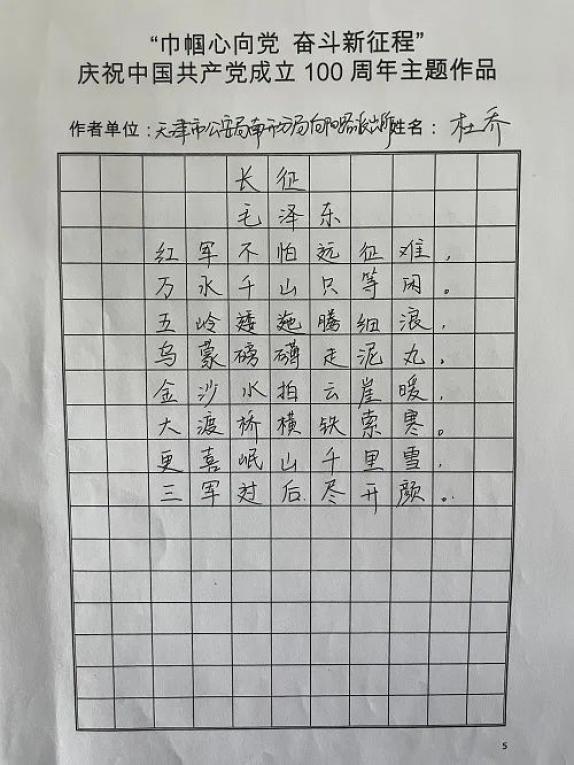 “巾帼心向党 奋斗新征程”
庆祝中国共产党成立 100 周年主题作品
作者单位：天津市公安局南开分局向阳路派出所 姓名：杜乔
长征
毛泽东
红军不怕远征难，
万水千山只等闲。
五岭逶迤腾细浪，
乌蒙磅礴走泥丸，
金沙水拍云崖暖，
大渡桥横铁索寒。
更喜岷山千里雪，
三军过后尽开颜。
5